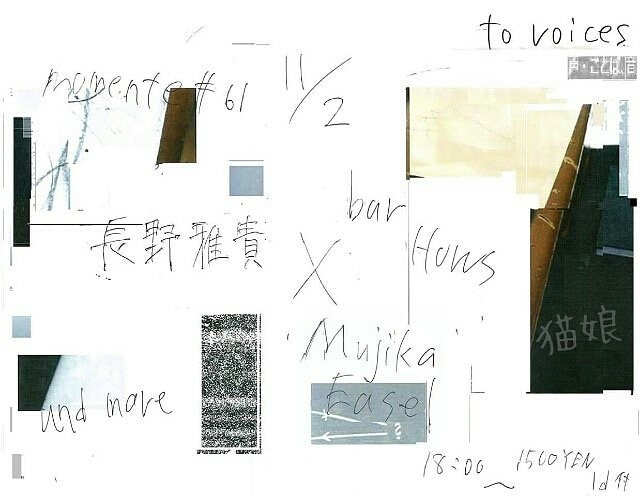 to voices
momente #61
11/2
bar
Hows
長野雅貴
X
Mujika
Easel
猫娘
und more
?
18:00〜
1500YEN
1d付